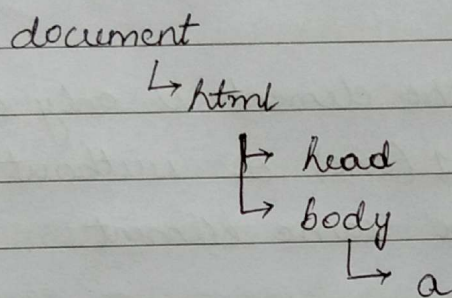 document
html
head
body
a